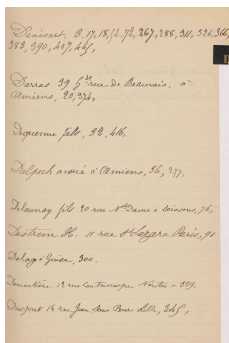 Denisart, B, 17, 18, 52, 72, 267, 288, 311, 324, 366,
383, 390, 407, 445,
Darras 39 rue de Beauvais, à
Amiens, 20, 374,
Dequenne fils. 32, 416,
Delpech avoué à Amiens, 36, 277,
Delaunay fils 20 rue Nre Dame à Soissons, 76,
Destrem H. 11 rue St Lazare Paris, 91
Delage à Guise, 300.
12 rue Contrescarpe Nantes - 329.
Duport 14 rue Jean sans Peur Lille, 345,